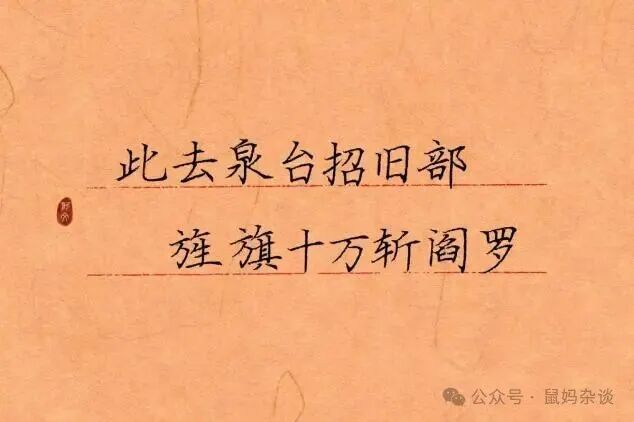 此去泉台招旧部
旌旗十万斩阎罗
公众号 · 鼠妈杂谈